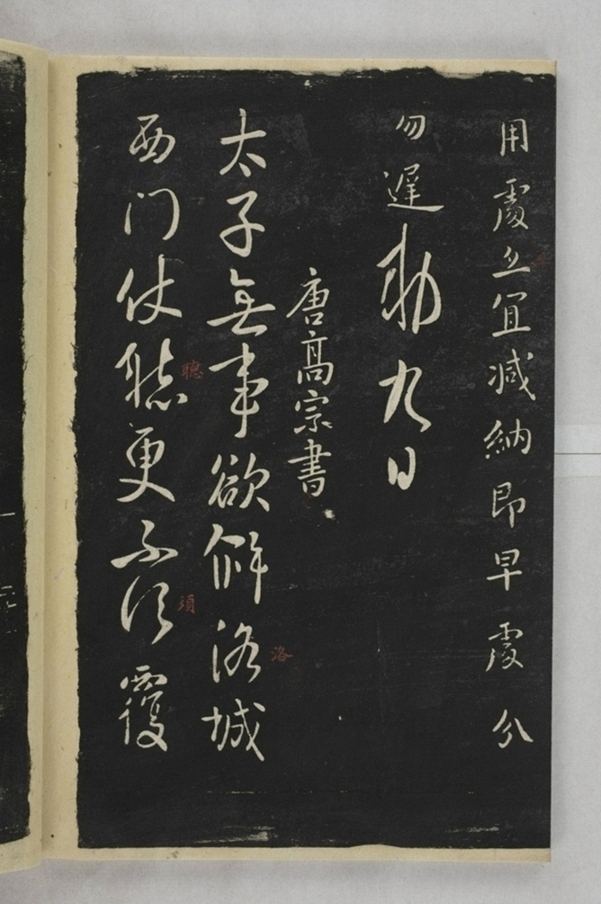 用處宜減納即早處分
勿遲勅九日
唐高宗書
太子無事欲解洛城
洛
西門仗聽更不須覆
聽
須